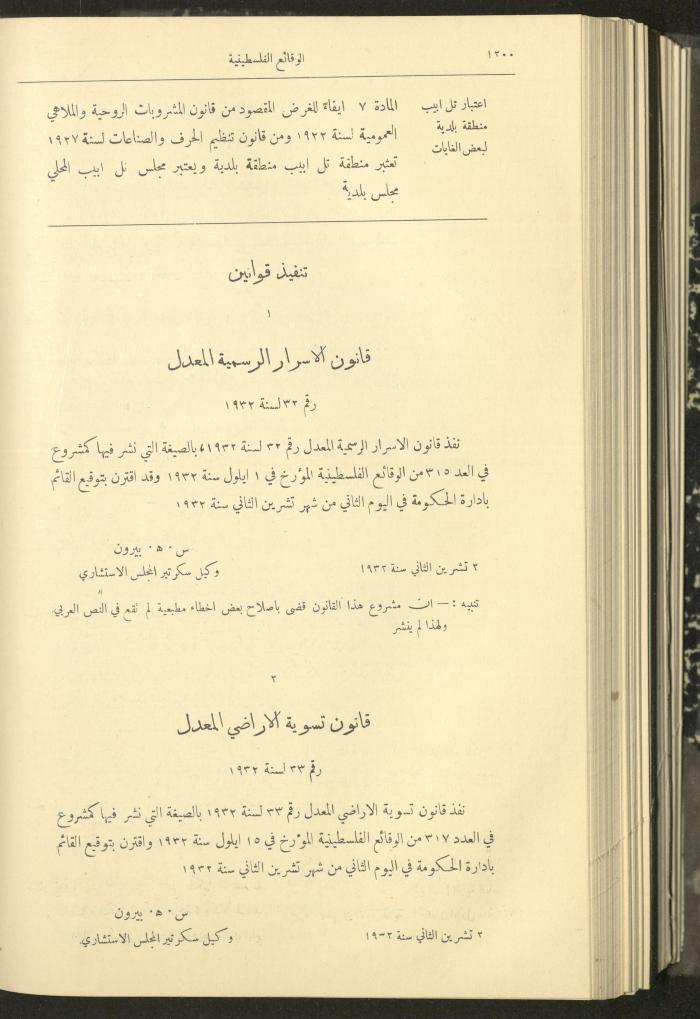 ١٣٠٠
الوقائع الفلسطينية
اعتبار تل ابيب
منطقة بلدية
لبعض الغايات
المادة ٧ ايفاءً للغرض المقصود من قانون المشروبات الروحية والملاهي
العمومية لسنة ١٩٢٢ ومن قانون تنظيم الحرف والصناعات لسنة ١٩٢٧
تعتبر منطقة تل ابيب منطقة بلدية ويعتبر مجلس تل ابيب المحلي
مجلس بلدية
تنفيذ قوانين
١
قانون الاسرار الرسمية المعدل
رقم ٣٢ لسنة ١٩٣٢
نفذ قانون الاسرار الرسمية المعدل رقم ٣٢ لسنة ١٩٣٢، بالصيغة التي نشر فيها كمشروع
في العد ٣١٥ من الوقائع الفلسطينية المؤرخ في ١ ايلول سنة ١٩٣٢ وقد اقترن بتوقيع القائم
بادارة الحكومة في اليوم الثاني من شهر تشرين الثاني سنة ١٩٣٢
س . ه . بيرون
٢ تشرين الثاني سنة ١٩٣٢
وكيل سكرتير المجلس الاستشاري
تنبيه : — ان مشروع هذا القانون قضى باصلاح بعض اخطاء مطبعية لم تقع في النص العربي
ولهذا لم ينشر
٢
قانون تسوية الاراضي المعدل
رقم ٣٣ لسنة ١٩٣٢
نفذ قانون تسوية الاراضي المعدل رقم ٣٣ لسنة ١٩٣٢ بالصيغة التي نشر فيها كمشروع
في العدد ٣١٧ من الوقائع الفلسطينية المؤرخ في ١٥ ايلول سنة ١٩٣٢ واقترن بتوقيع القائم
بادارة الحكومة في اليوم الثاني من شهر تشرين الثاني سنة ١٩٣٢
س . ه . بيرون
٢ تشرين الثاني سنة ١٩٣٢
وكيل سكرتير المجلس الاستشاري